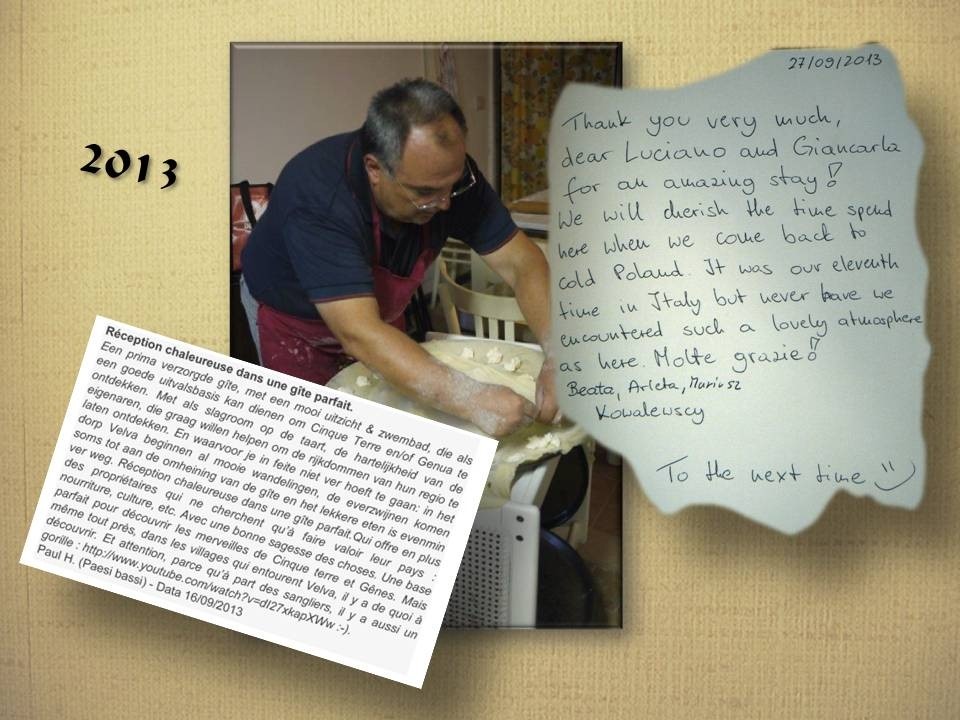 2013
27/09/2013
Thank you very much,
dear Luciano and Giancarla
for an amazing stay!
We will cherish the time spend
here when we come back to
cold Poland. It was our eleventh
time in Italy but never have we
encountered such a lovely atmosphere
as here. Molte grazie!
Beata, Arleta, Mariusz
Kowalewscy
To the next time :)
Réception chaleureuse dans une gîte parfait.
Een prima verzorgde gîte, met een mooi uitzicht & zwembad, die als
een goede uitvalsbasis kan dienen om Cinque Terre en/of Genua te
ontdekken. Met als slagroom op de taart, de hartelijkheid van de
eigenaren, die graag willen helpen om de rijkdommen van hun regio te
laten ontdekken. En waarvoor je in feite niet ver hoeft te gaan: in het
dorp Velva beginnen al mooie wandelingen, de everzwijnen komen
soms tot aan de omheining van de gîte en het lekkere eten is evenmin
ver weg. Réception chaleureuse dans une gîte parfait.Qui offre en plus
des propriétaires qui ne cherchent qu'à faire valoir leur pays :
nourriture, culture, etc. Avec une bonne sagesse des choses. Une base
parfait pour découvrir les merveilles de Cinque terre et Gênes. Mais
même tout près, dans les villages qui entourent Velva, il y a de quoi à
découvrir. Et attention, parce qu'à part des sangliers, il y a aussi un
gorille : http://www.youtube.com/watch?v=dI27xkapXWw :-).
Paul H. (Paesi bassi) - Data 16/09/2013